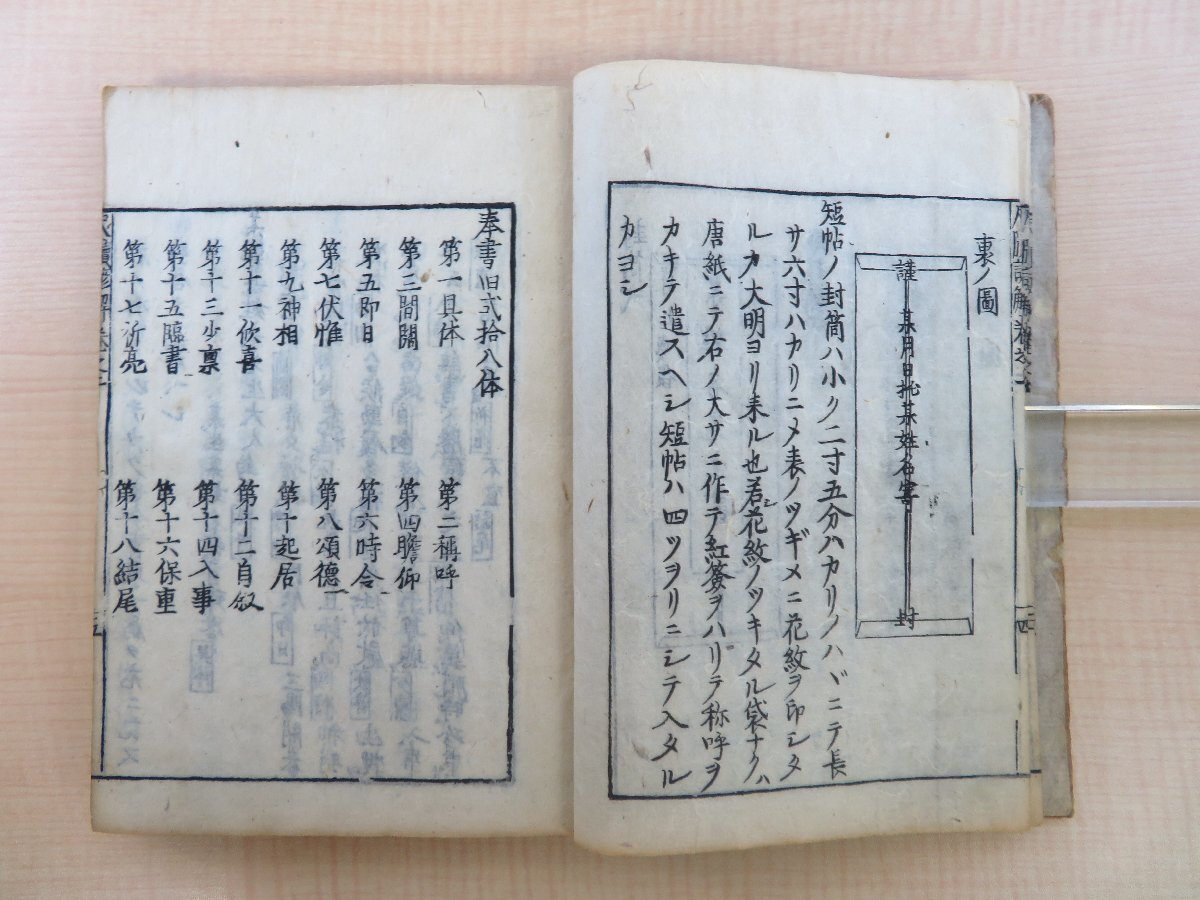 裏ノ圖
謹 某月日拕某姓名寄 封
短帖ノ封筒ハ小ク二寸五分ハカリノハヾニテ長
サ六寸ハカリニメ表ノツギメニ花紋ヲ印シタ
ルカ大明ヨリ来ル也若シ花紋ノツキタル袋ナクハ
唐紙ニテ右ノ大サニ作テ紅簽ヲハリテ称呼ヲ
カキテ遣スヘシ短帖ハ四ツヲリニシテ入タル
カヨシ
奉書旧式拾八体
第一具体 第二稱呼
第三間闊 第四瞻仰
第五即日 第六時令
第七伏惟 第八頌德
第九神相 第十起居
第十一欣喜 第十二自叙
第十三少禀 第十四入事
第十五臨書 第十六保重
第十七祈亮 第十八結尾